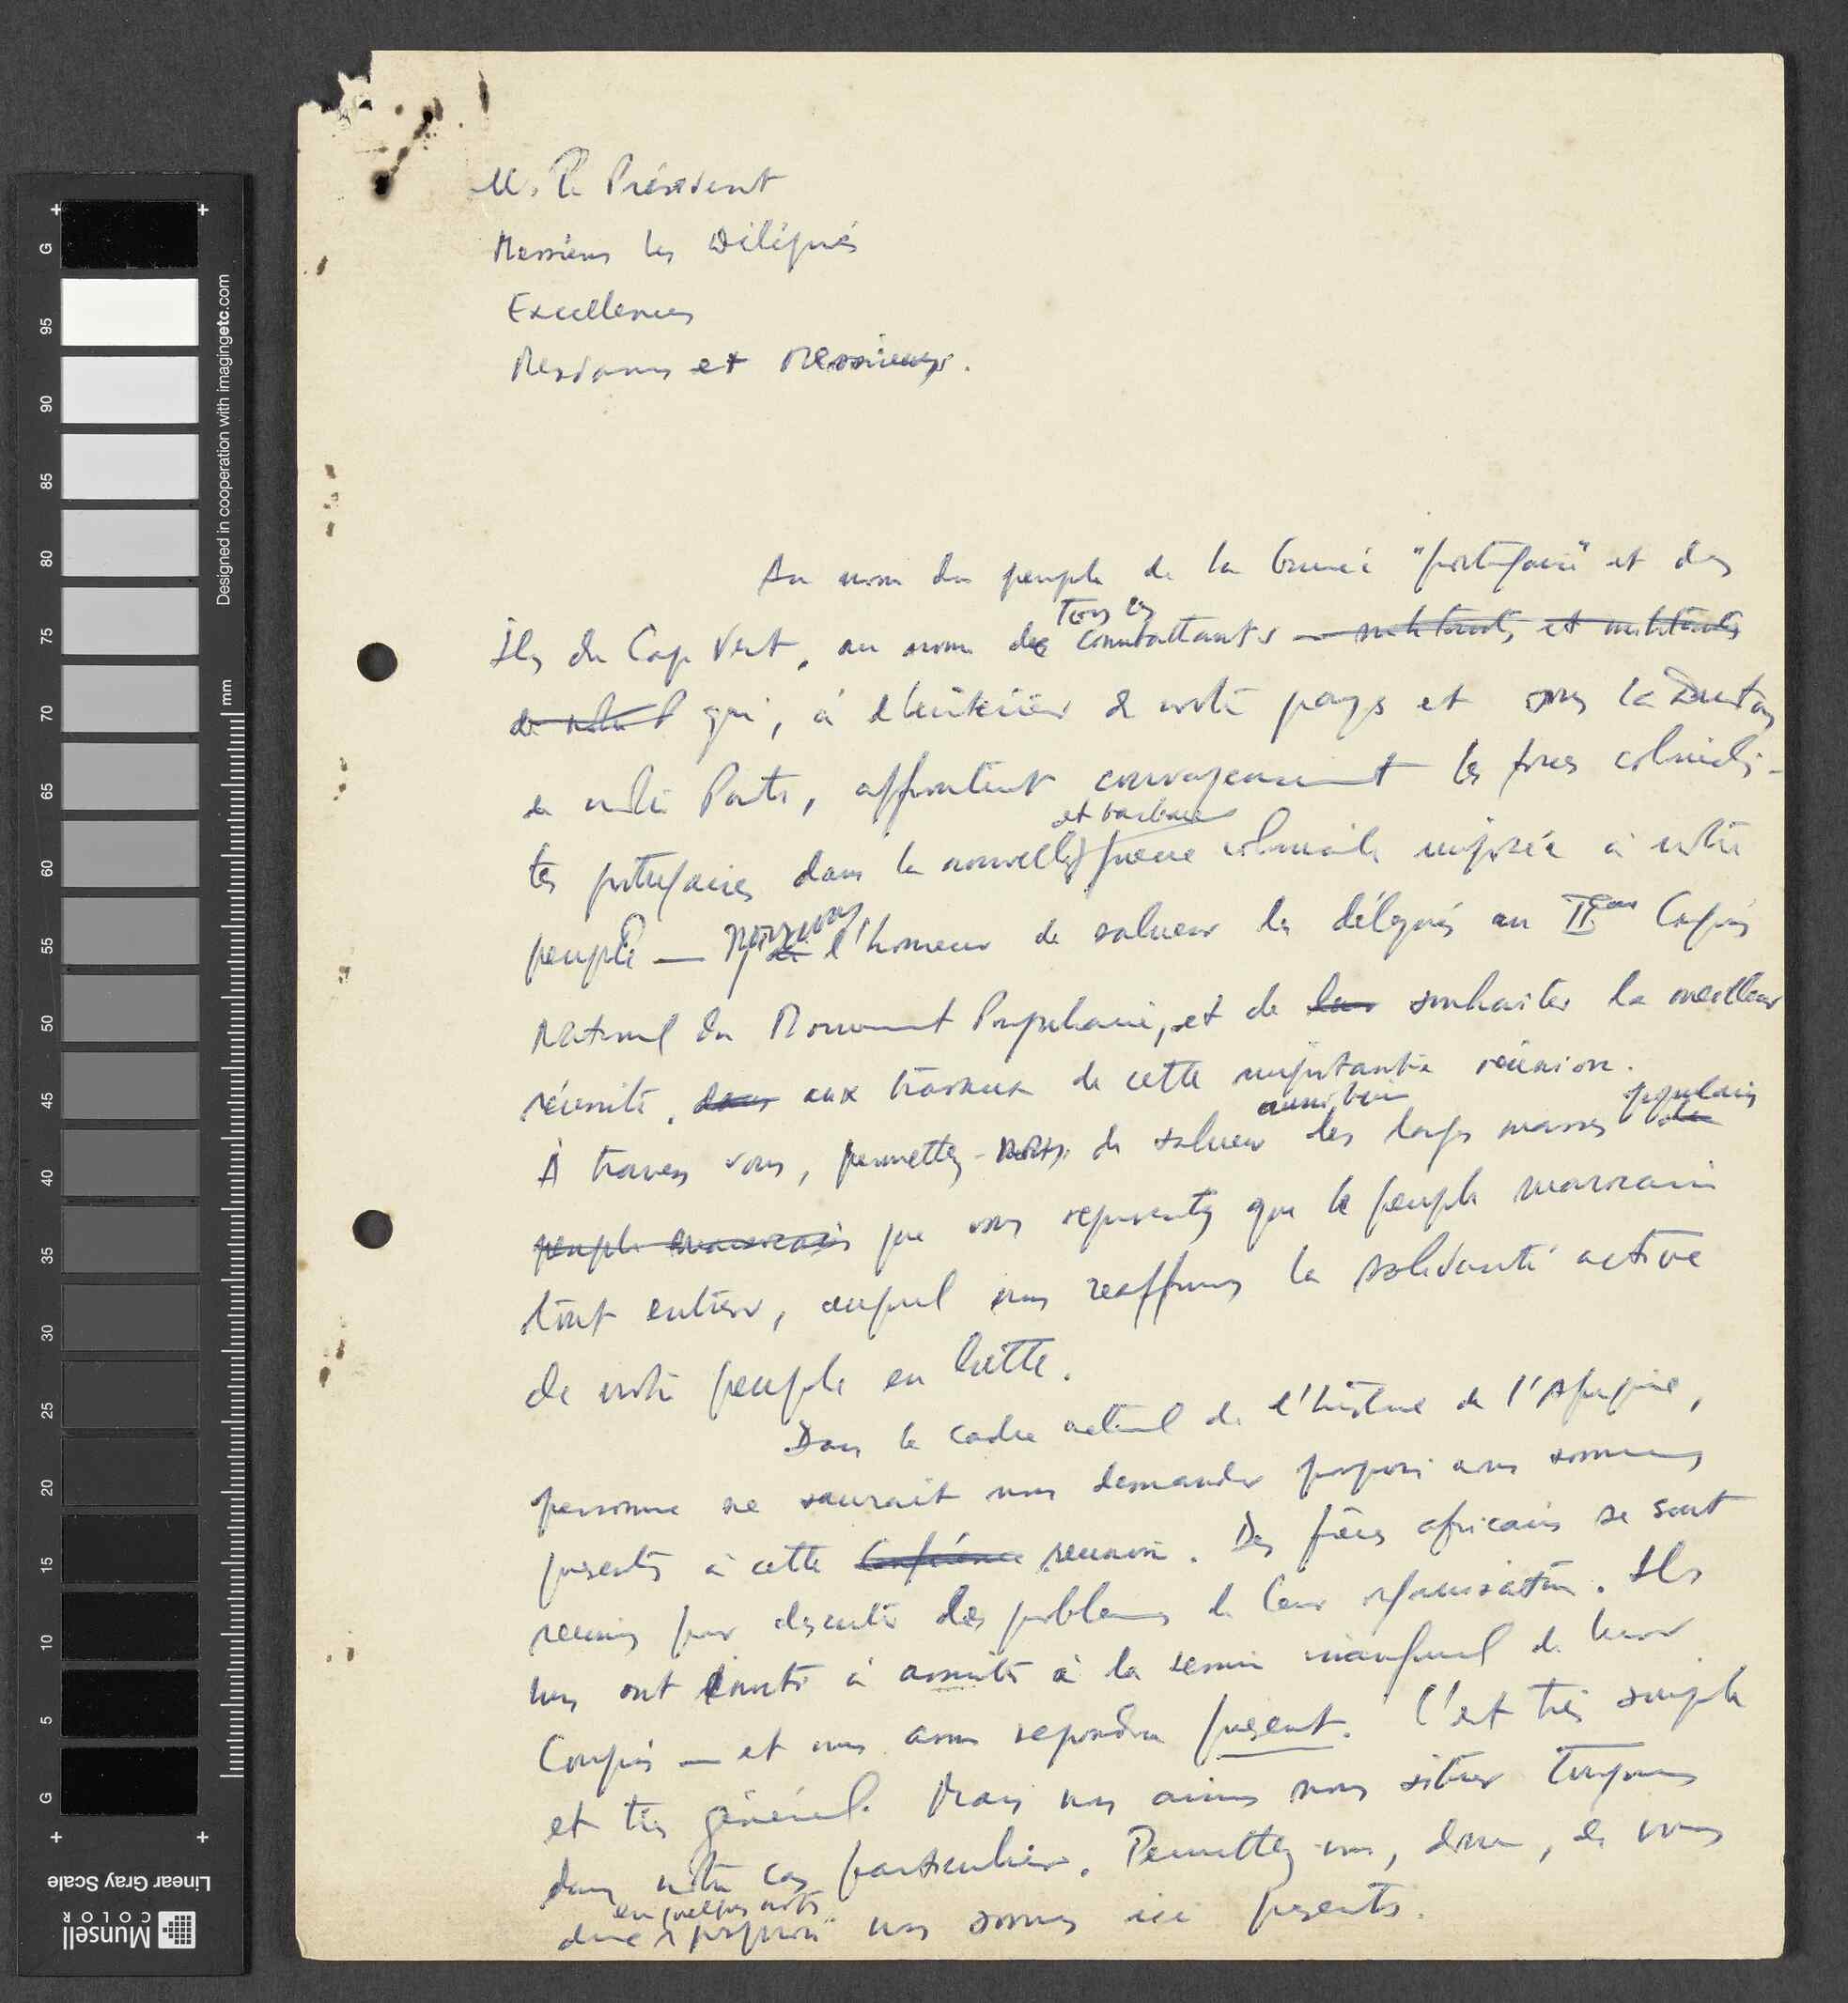 M. le Président
Messieurs les Délégués
Excellences
Mesdames et Messieurs.
Au nom du peuple de la Guinée "portugaise" et des
tous les
Iles du Cap Vert, au nom de combattants — militants et militants
de notre P qui, à l'intérieur de notre pays et sous la direction
de notre Parti, affrontent courageusement les forces colonialis-
et barbare
tes portugaises dans la nouvelle guerre coloniale imposée à notre
peuple — nous avons l'honneur de saluer les délégués au IIème Congrès
National du Mouvement Populaire, et de leur souhaiter la meilleur
réussite, dans aux travaux de cette importante réunion.
aussi bien
populaires
À travers vous, permettez-nous de saluer les larges masses du
peuple marocain que vous representez que le peuple marocain
tout entier, auquel nous reaffirmons la solidarité active
de notre peuple en lutte.
Dans le cadre actuel de l'histoire de l'Afrique,
personne ne saurait nous demander pourquoi nous sommes
presents à cette Conférence reunion. Des frères africains se sont
reunis pour discuter des problemes de leur organisation. Ils
nous ont invités à assister à la session inaugural de leur
Congrès — et nous avons repondu present. C'est très simple
et très général. Mais nous aimons nous situer toujours
dans notre cas particulier. Permettez-nous, donc, de vous
en quelques mots
dire pourquoi nous sommes ici presents.